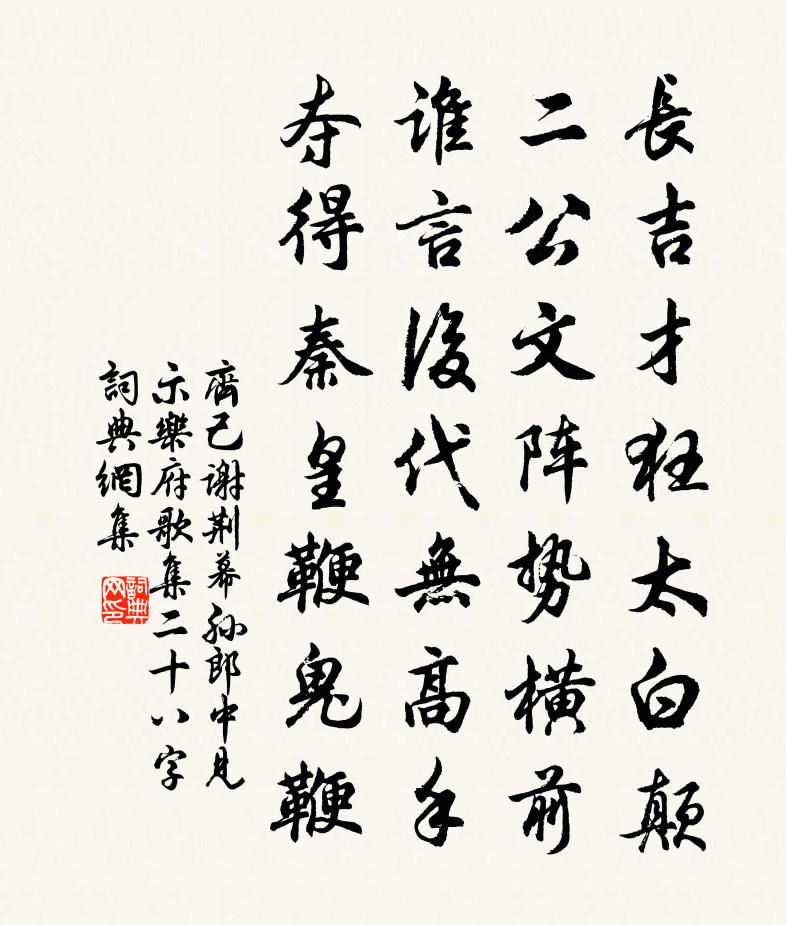 長吉才狂太白顛
二公文阵势橫前
谁言後代無高手
夺得秦皇鞭鬼鞭
齊己谢荆幕孙郎中见
示樂府歌集二十八字
詞典網集
詞典
网印